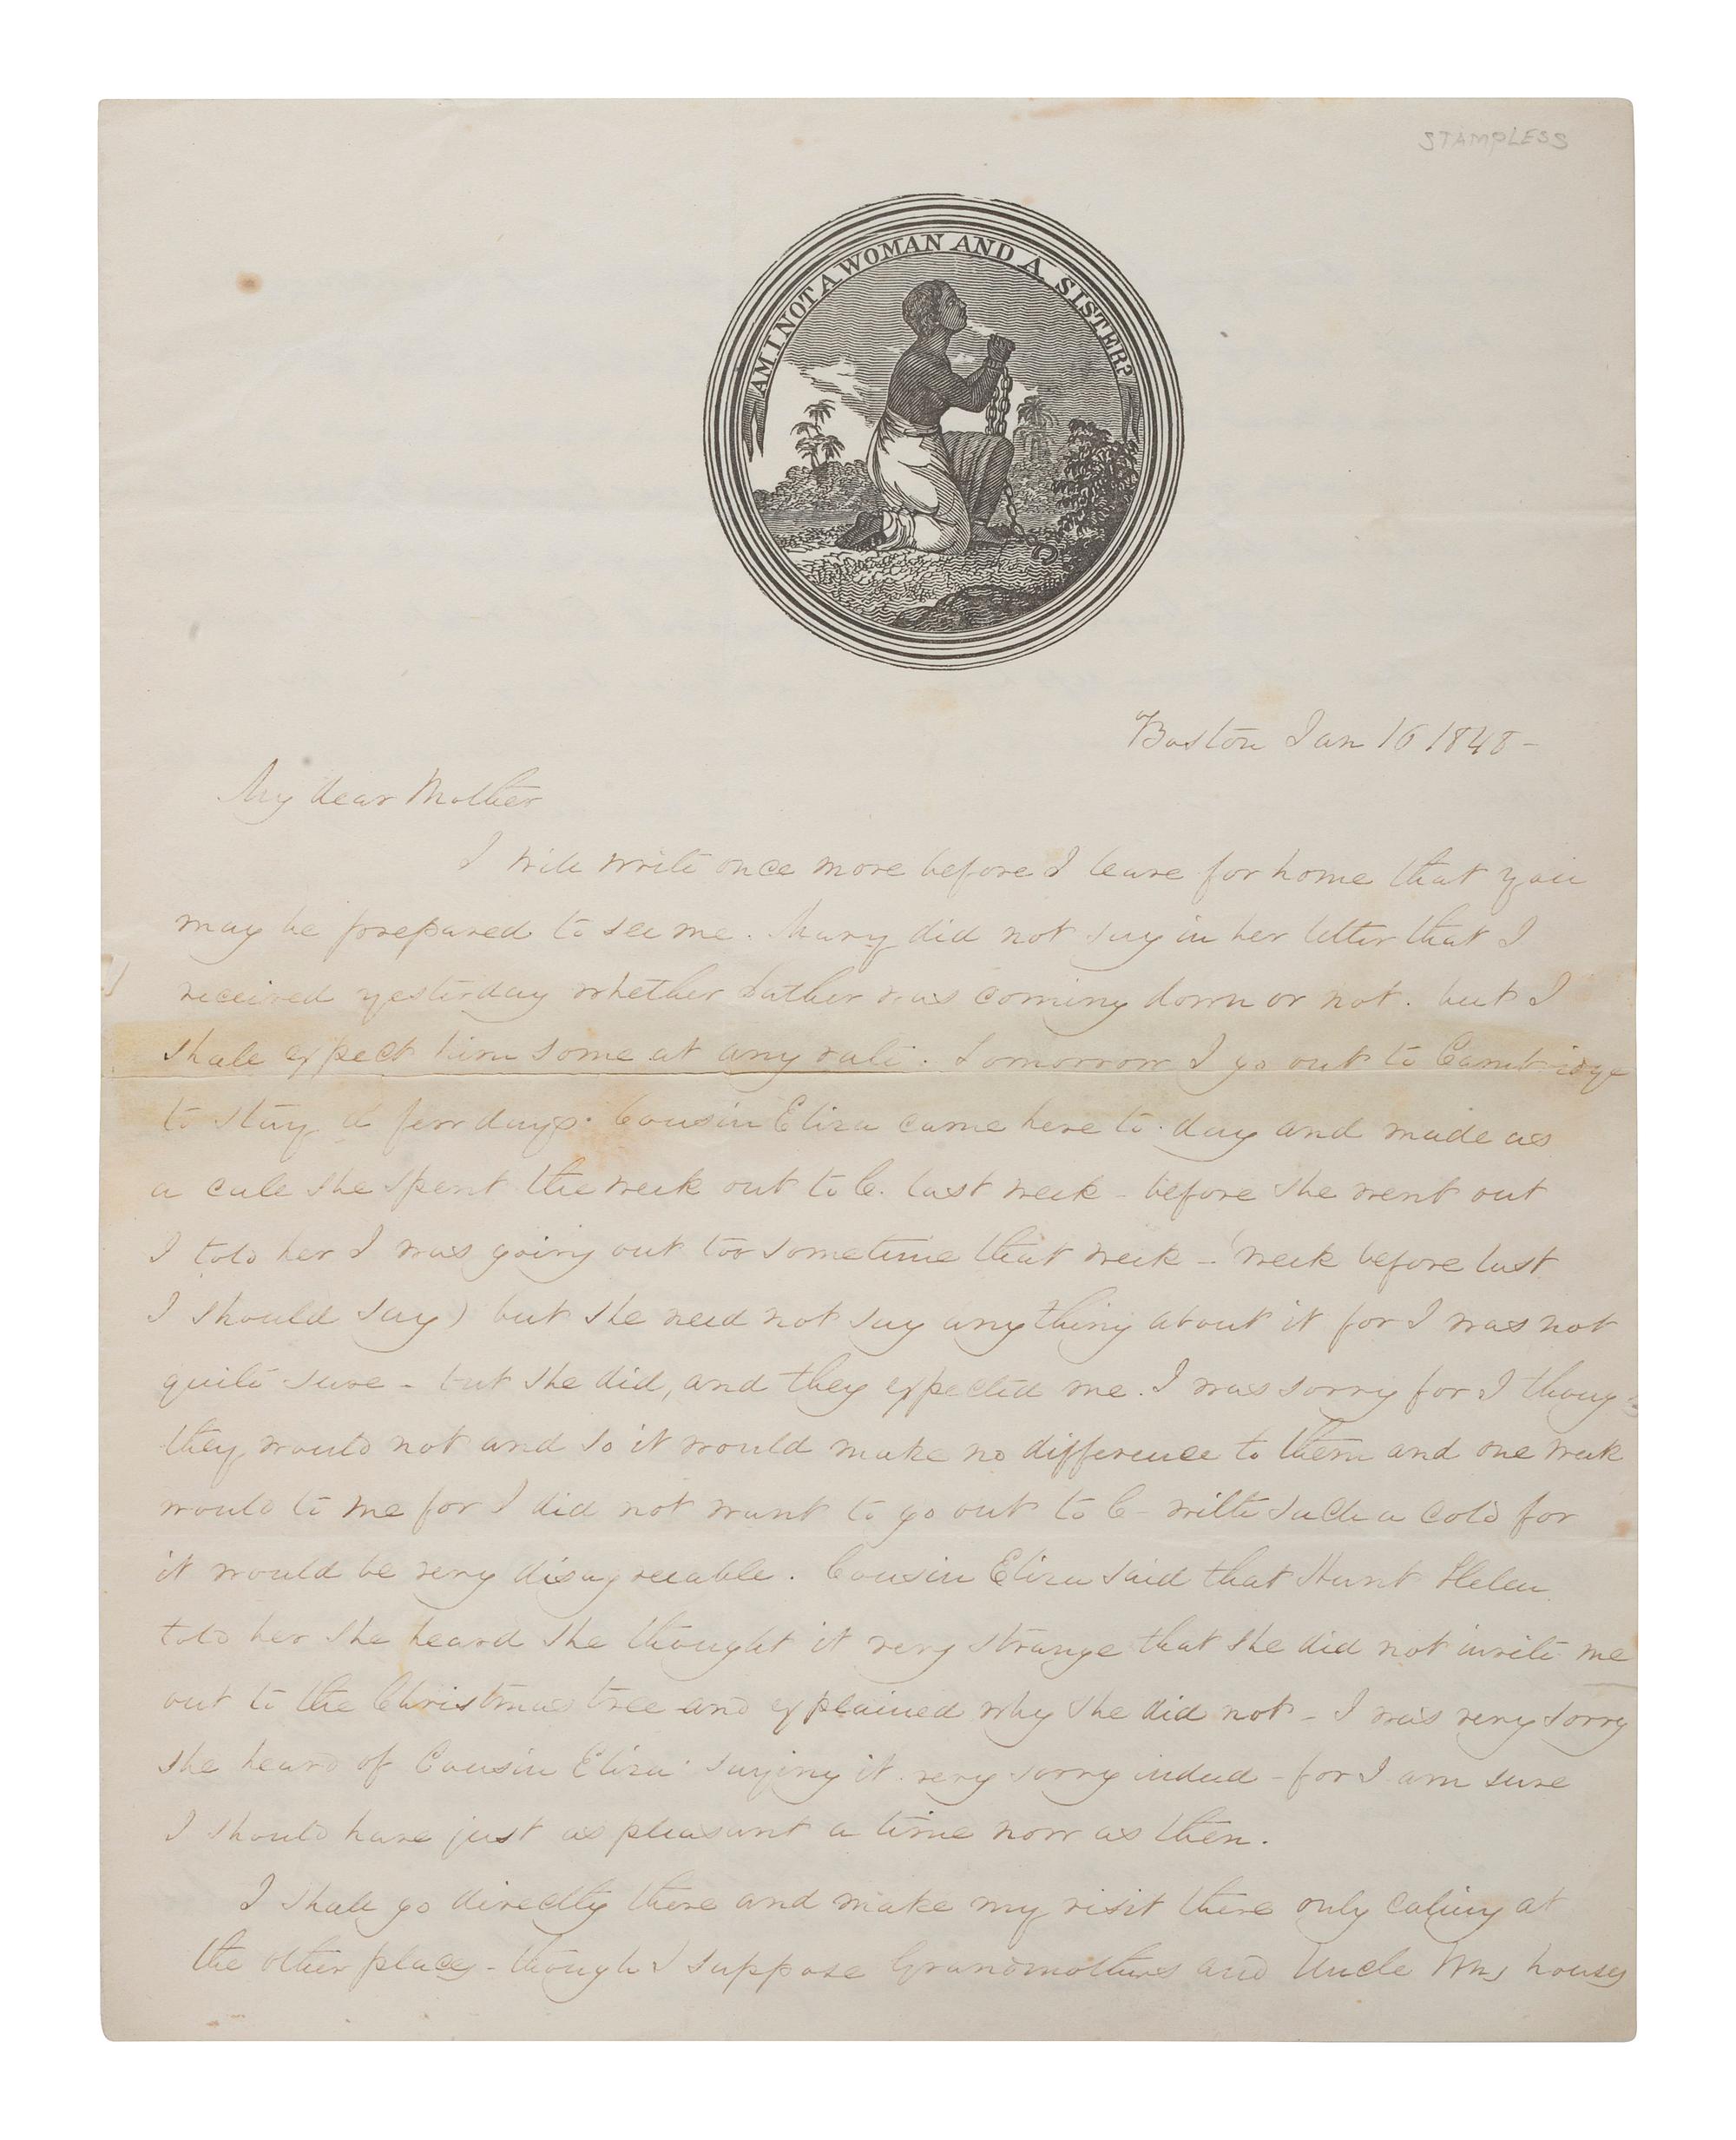 STAMPLESS
AM I NOT A WOMAN AND A SISTER?
Boston Jan 16 1848 -
My dear Mother
I will write once more before I leave for home that you
may be prepared to see me. Mary did not say in her letter that I
received yesterday whether Father was coming down or not. but I
shall expect him some at any rate. Tomorrow I go out to Cambridge
to stay a few days. Cousin Eliza came here to day and made us
a call she spent the week out to C. last week - before she went out
I told her I was going out too sometime that week - (week before last
I should say) but she need not say any thing about it for I was not
quite sure - but she did, and they expected me. I was sorry for I thoug
they would not and so it would make no difference to them and one week
would to me for I did not want to go out to C - with such a cold for
it would be very disagreeable. Cousin Eliza said that Aunt Helen
told her she heard she thought it very strange that she did not invite me
out to the Christmas tree and explained why she did not - I was very sorry
she heard of Cousin Eliza saying it. very sorry indeed - for I am sure
I should have just as pleasant a time now as then.
I shall go directly there and make my visit there only calling at
the other places - though I suppose Grandmothers and Uncle Wms houses